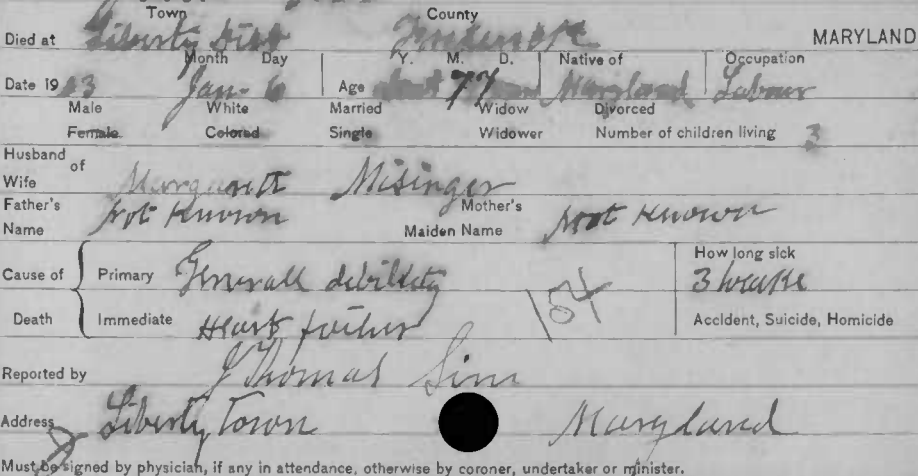 Town County
Died at Liberty Dist Frederick MARYLAND
Month Day Y. M. D. Native of Occupation
Date 1903 Jan. 6 Age about 77 Maryland Labour
Male White Married Widow Divorced
Female Colored Single Widower Number of children living 3
Husband
of
Wife Margarett Misinger
Father's Mother's
Name Not Known Maiden Name Not Known
How long sick
Cause of Primary Generall debility 3 weake
Death Immediate Heart failuer 154 Accident, Suicide, Homicide
Reported by J Thomas Sim
Address Liberty Town Maryland
Must be signed by physician, if any in attendance, otherwise by coroner, undertaker or minister.